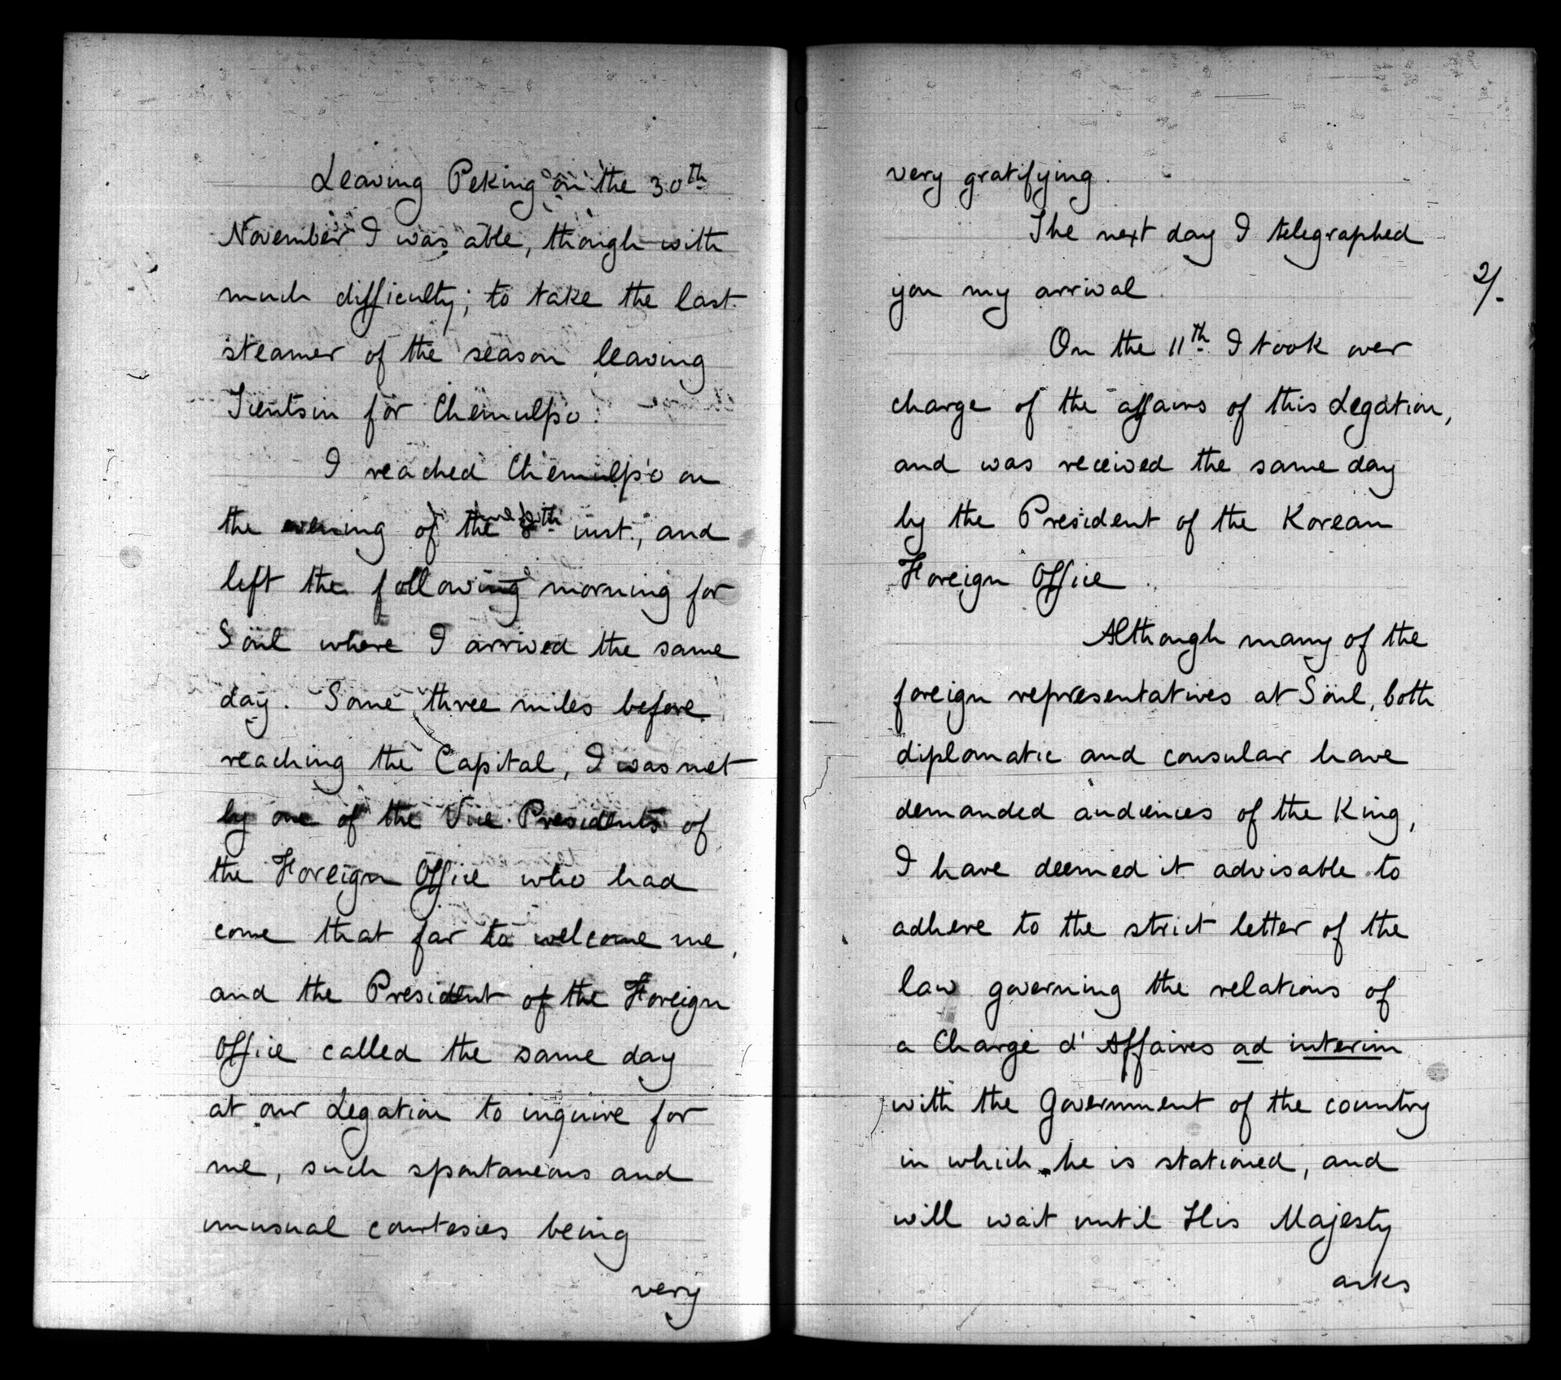 Leaving Peking on the 30th
November I was able, though with
much difficulty; to take the last
steamer of the season leaving
Tientsin for Chemulpo.
I reached Chemulpo on
the evening of the 8th inst., and
left the following morning for
Söul where I arrived the same
day. Some three miles before
reaching the Capital, I was met
by one of the Vice Presidents of
the Foreign Office who had
come that far to welcome me,
and the President of the Foreign
Office called the same day
at our Legation to inquire for
me, such spontaneous and
unusual courtesies being
very
very gratifying.
The next day I telegraphed
you my arrival.
2/.
On the 11th I took over
charge of the affairs of this Legation,
and was received the same day
by the President of the Korean
Foreign Office.
Although many of the
foreign representatives at Söul, both
diplomatic and consular have
demanded audiences of the King,
I have deemed it advisable to
adhere to the strict letter of the
law governing the relations of
a Chargé d'Affaires ad interim
with the Government of the country
in which he is stationed, and
will wait until His Majesty
asks